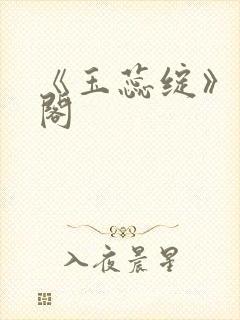 《玉蕊绽》
阁
入夜晨星